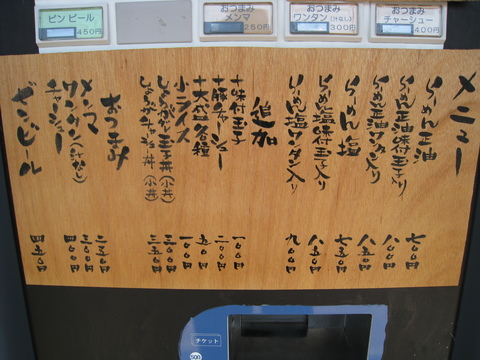 ビン ビール
450円
おつまみ
メンマ
250円
おつまみ
ワンタン(汁なし)
300円
おつまみ
チャーシュー
400円
メニュー
らーめん正油 七〇〇円
らーめん正油味付玉子入り 八〇〇円
らーめん正油ワンタン入り 八五〇円
らーめん塩 七五〇円
らーめん塩味付玉子入り 八五〇円
らーめん塩ワンタン入り 九〇〇円
追加
+味付玉子 一〇〇円
+豚チャーシュー 二〇〇円
+大盛各種 五〇円
小ライス 一〇〇円
玉子丼(小丼) 三〇〇円
丼(小丼) 三五〇円
おつまみ
メンマ 二五〇円
ワンタン(汁なし) 三〇〇円
チャーシュー 四〇〇円
ビンビール 四五〇円
チケット
500